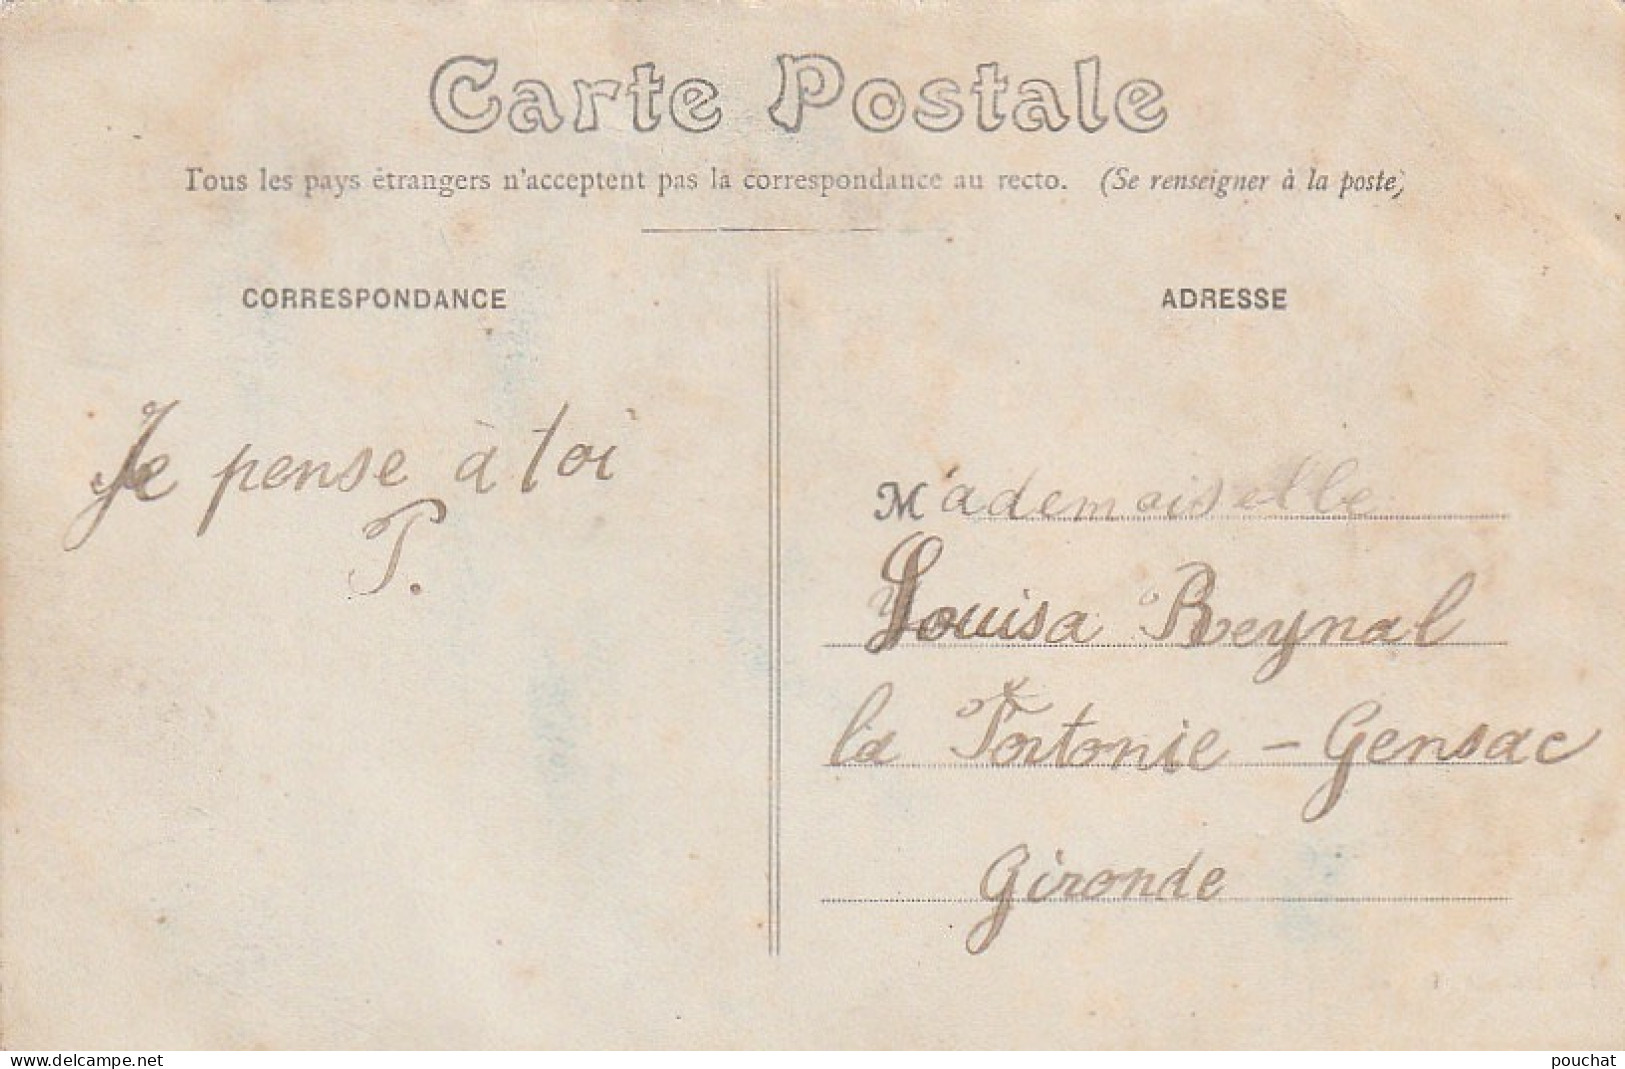 Carte Postale
Tous les pays étrangers n'acceptent pas la correspondance au recto. (Se renseigner à la poste)
CORRESPONDANCE
Je pense à toi
P.
ADRESSE
Mademoiselle
Louisa Reynal
la Tortonie - Gensac
Gironde
www.delcampe.net
pouchat